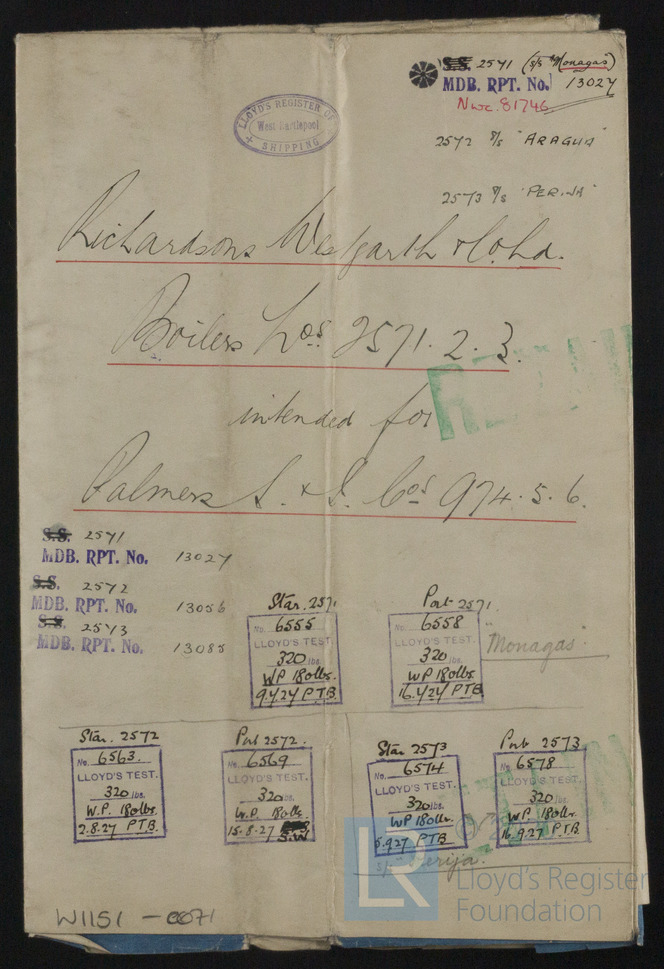 S.S. 2571 (s/s "Monagas)
MDB. RPT. No. 13027
Nwc. 81746
2572 S/s "ARAGUA"
2573 S/s "PERIJA"
LLOYD'S REGISTER OF
West Hartlepool
SHIPPING
Richardsons Westgarth & Co. Ld.
Boilers Nos. 2571. 2. 3.
intended for
Palmers S. & I. Cos 974. 5. 6.
S.S. 2571
MDB. RPT. No. 13027
S.S. 2572
MDB. RPT. No. 13056
S.S. 2573
MDB. RPT. No. 13085
Star. 2571
No. 6555
LLOYD'S TEST.
320 lbs.
WP 180lbs.
9.7.27 P.T.B.
Port 2571.
No. 6558
LLOYD'S TEST.
320 lbs.
WP 180lbs.
16.7.27 P.T.B.
"Monagas"
Star. 2572
No. 6563.
LLOYD'S TEST.
320 lbs.
W.P. 180lbs
2.8.27 P.T.B.
Port 2572.
No. 6569
LLOYD'S TEST.
320 lbs.
W.P. 180lbs
15.8.27
S.W
Star 2573
No. 6574
LLOYD'S TEST.
320 lbs.
WP 180lbs.
5.9.27 P.T.B
Port 2573
No. 6578
LLOYD'S TEST.
320 lbs.
WP. 180lbs.
16.9.27 P.T.B.
s/s Perija.
W1151 - 0071
LR
Lloyd's Register
Foundation